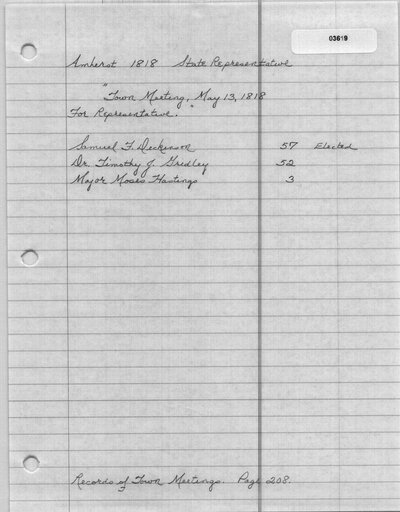 03619
Amherst 1818 State Representative
"Town Meeting, May 13, 1818
For Representative."
Samuel F. Dickinson 57 Elected
Dr. Timothy J. Gredley 52
Major Moses Hastings 3
Records of Town Meetings. Page 208.